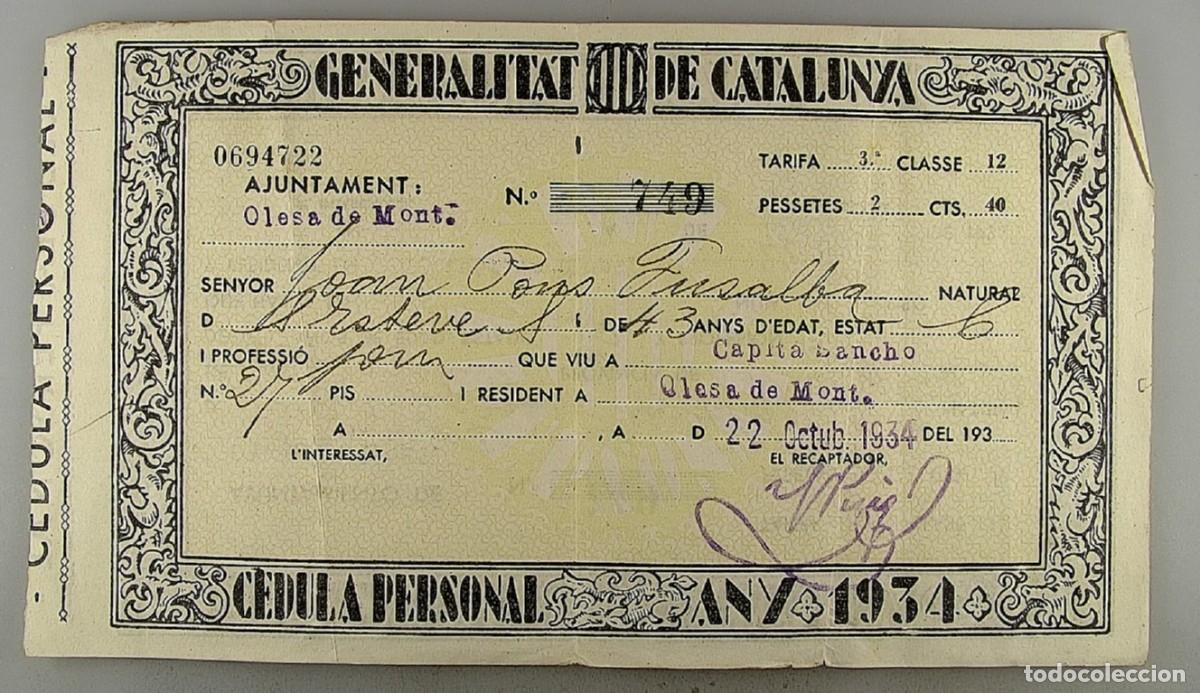 GENERALITAT DE CATALUNYA
- CÈDULA PERSONAL -
0694722
TARIFA 3.ª CLASSE 12
AJUNTAMENT:
N.º 749
PESSETES 2 CTS. 40
Olesa de Mont.
SENYOR Joan Pons Fusalba NATURAL
D St Esteve S I DE 43 ANYS D'EDAT, ESTAT C
I PROFESSIÓ jorn QUE VIU A Capita Sancho
N.º 27 PIS I RESIDENT A Olesa de Mont.
A , A D 22 Octub. 1934 DEL 193
L'INTERESSAT,
EL RECAPTADOR,
CÈDULA PERSONAL ANY 1934
todocoleccion